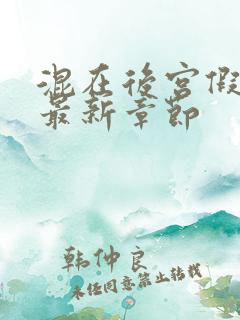 混在後宮假
最新章節
韩仲良
未经同意禁止转载